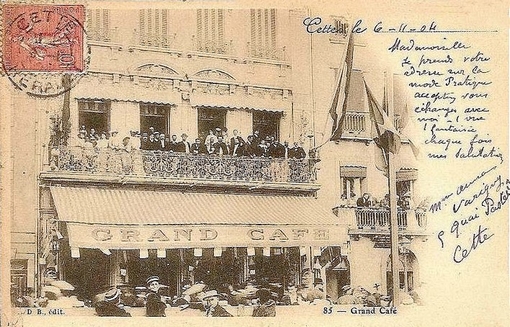 CETTE
HERAULT
Cette le 6-11-04
Mademoiselle
Je prends votre
adresse sur la
mode Pratique
acceptez vous
échanger avec
moi - 1 vue
1 fantaisie
chaque fois
mes salutations
Quai
Cette
GRAND CAFE
D. B., édit.
85 — Grand Café